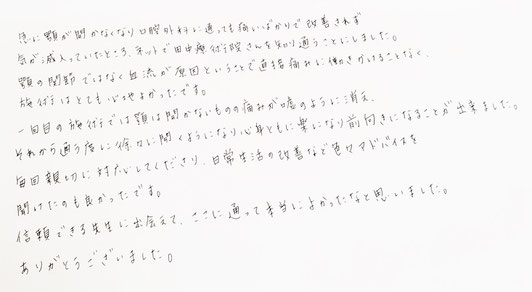 急に顎が開かなくなり口腔外科に通っても痛いばかりで改善されず
気が滅入っていたところ、ネットで田中療術院さんを知り通うことにしました。
顎の関節ではなく血流が原因ということで直接痛みに働きかけることなく、
施術はとても心地よかったです。
一回目の施術では顎は開かないものの痛みが嘘のように消え、
それから通う度に徐々に開くようになり心身ともに楽になり前向きになることが出来ました。
毎回親切に対応してくださり、日常生活の改善など色々アドバイスを
聞けたのも良かったです。
信頼できる先生に出会えて、ここに通って本当によかったなと思いました。
ありがとうございました。